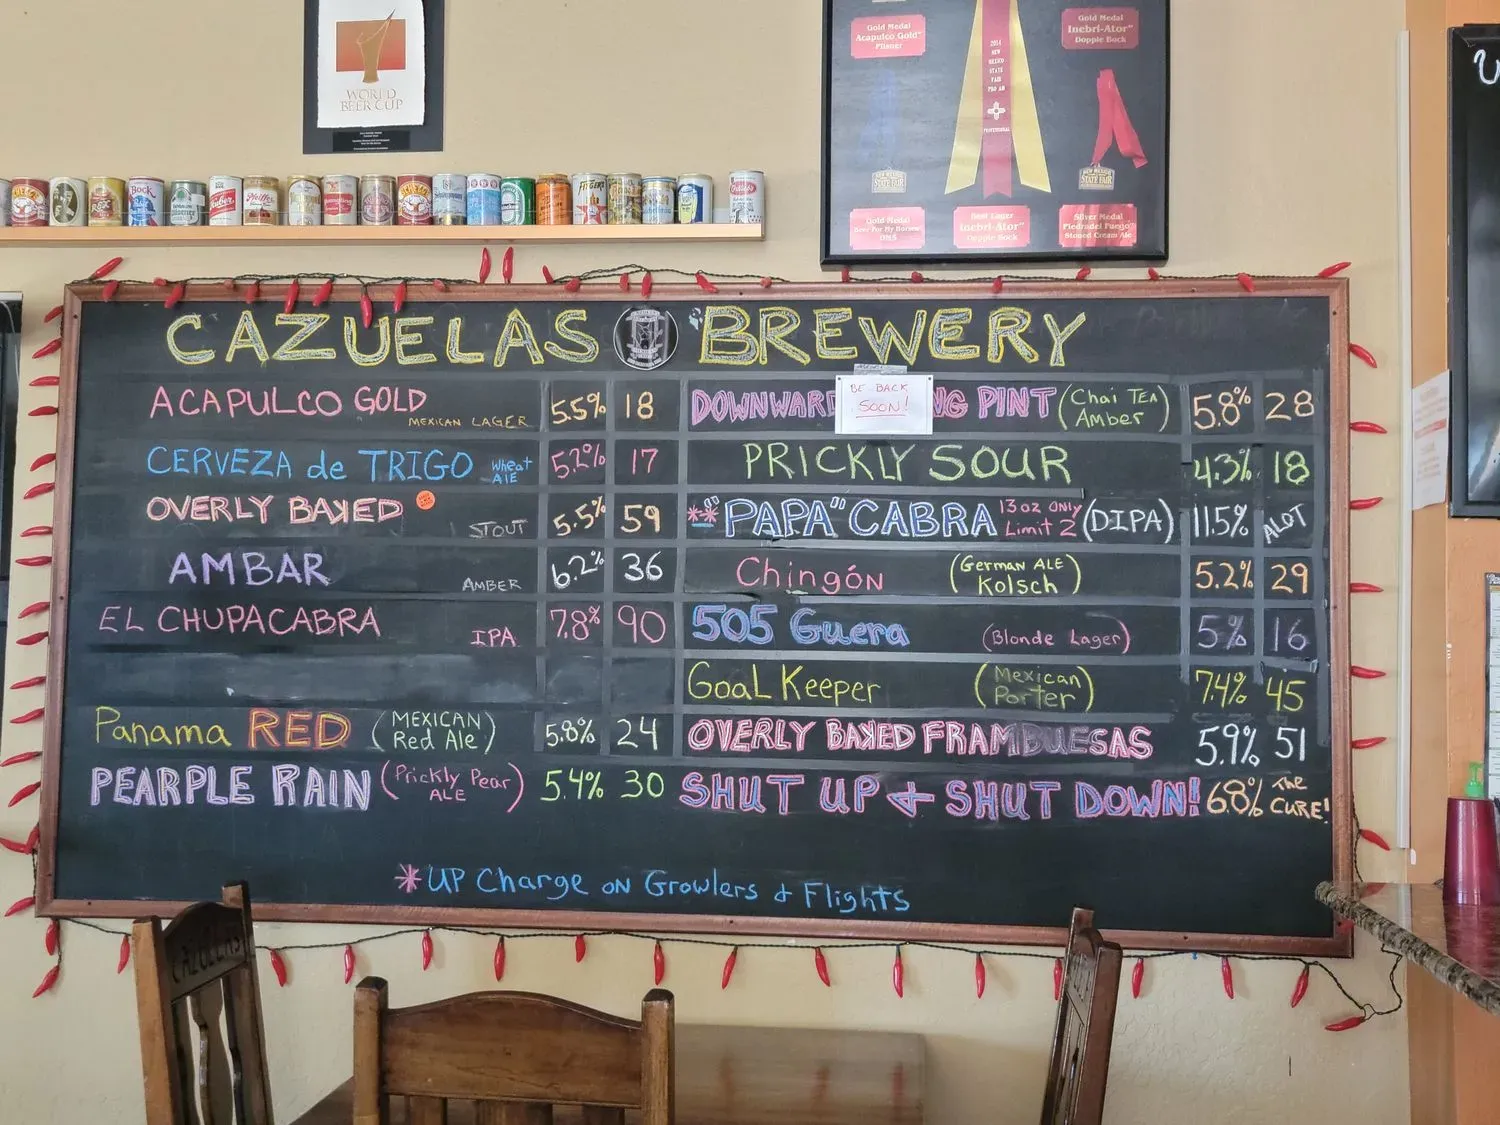 WORLD
BEER CUP
Gold Medal
Acapulco Gold"
Pilsner
2014
NEW
MEXICO
STATE
FAIR
PRO AM
PROFESSIONAL
Gold Medal
Inebri-Ator"
Dopple Bock
NEW MEXICO
STATE FAIR
STATE FAIR
Gold Medal
Beer For My Horses
Best Lager
Inebri-Ator"
Dopple Bock
Silver Medal
Piedradel Fuego"
Stoned Cream Ale
CAZUELAS BREWERY
ACAPULCO GOLD MEXICAN LAGER 5.5% 18
CERVEZA de TRIGO Wheat ALE 5.2% 17
OVERLY BAKED STOUT 5.5% 59
AMBAR AMBER 6.2% 36
EL CHUPACABRA IPA 7.8% 90
Panama RED (MEXICAN Red Ale) 5.8% 24
PEARPLE RAIN (Prickly Pear ALE) 5.4% 30
DOWNWARD NG PINT (Chai TEA Amber) 5.8% 28
BE BACK
SOON!
PRICKLY SOUR 4.3% 18
**"PAPA" CABRA 13 oz ONLY Limit 2 (DIPA) 11.5% ALOT
Chingón (German ALE Kolsch) 5.2% 29
505 Guera (Blonde Lager) 5% 16
Goal Keeper (Mexican Porter) 7.4% 45
OVERLY BAKED FRAMBUESAS 5.9% 51
SHUT UP & SHUT DOWN! 6.8% THE CURE!
*UP Charge ON Growlers & Flights
CAZUELAS